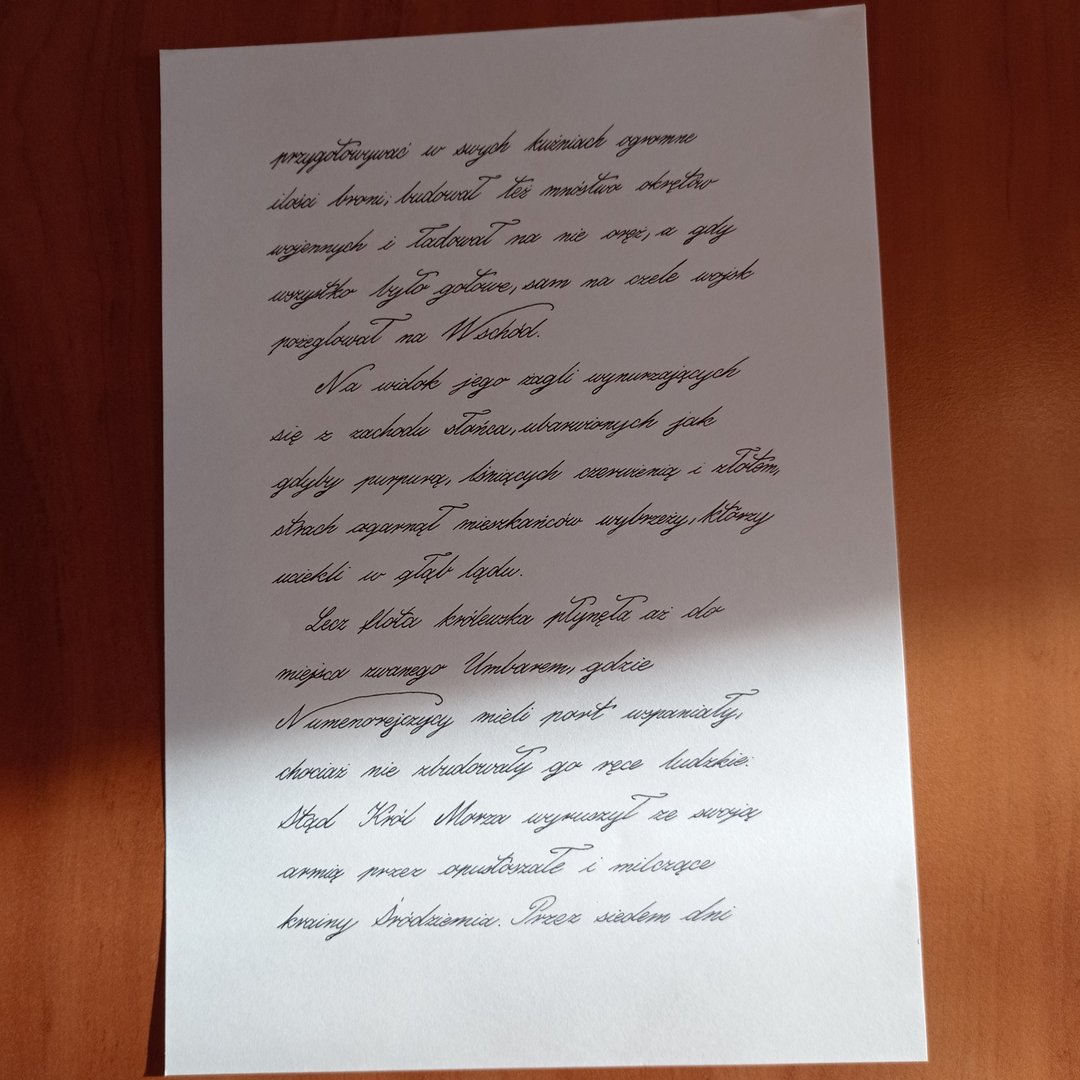 przygotowywać w swych kuźniach ogromne
ilości broni; budował też mnóstwo okrętów
wojennych i ładował na nie oręż, a gdy
wszystko było gotowe, sam na czele wojsk
pożeglował na Wschód.
Na widok jego żagli wynurzających
się z zachodu słońca, ubarwionych jak
gdyby purpurą, lśniących czerwienią i złotem,
strach ogarnął mieszkańców wybrzeży, którzy
uciekli w głąb lądu.
Lecz flota królewska płynęła aż do
miejsca zwanego Umbarem, gdzie
Numenorejczycy mieli port wspaniały,
chociaż nie zbudowały go ręce ludzkie.
Stąd Król Morza wyruszył ze swoją
armią przez opustoszałe i milczące
krainy Śródziemia. Przez siedem dni